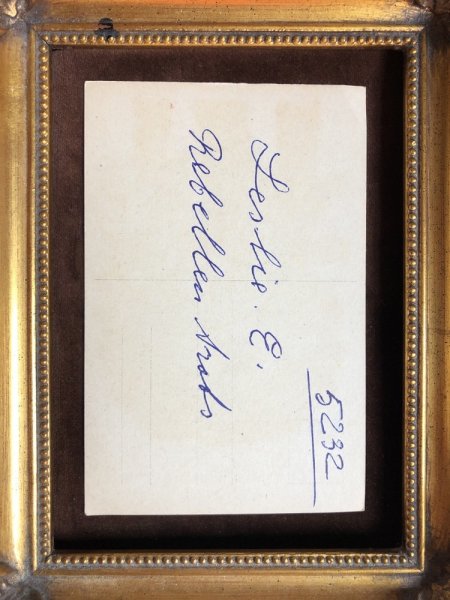 5232
Leslie. E.
Rebellen Arabs